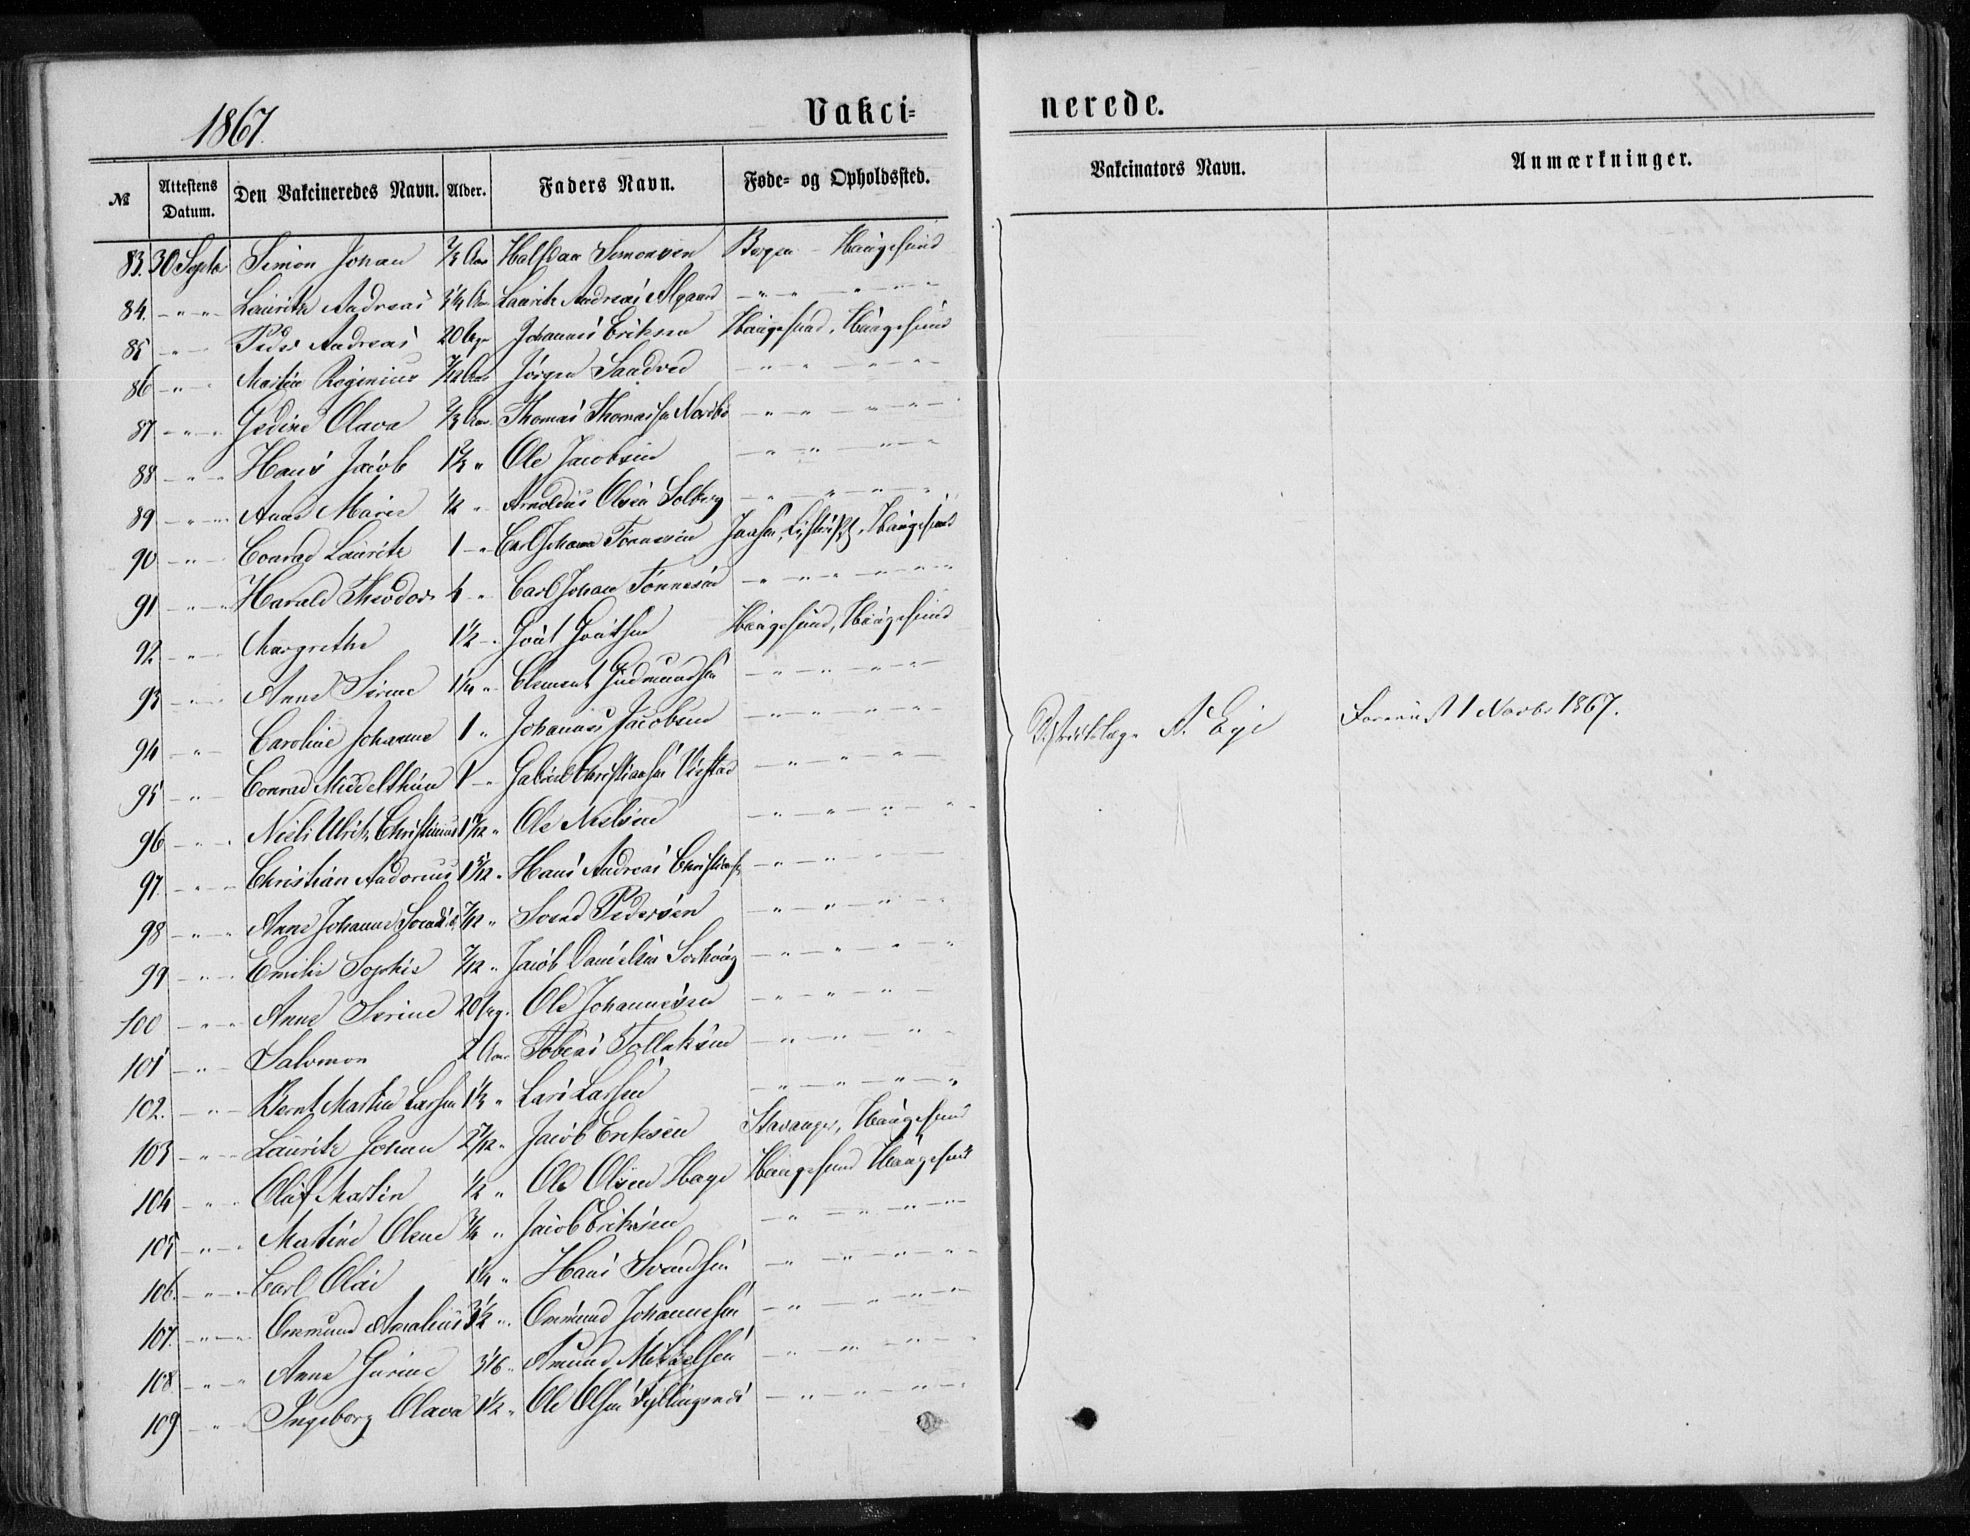 1867.
Vakci-
nerede.
№ Attestens Datum. Den Vakcineredes Navn. Alder. Faders Navn. Føde- og Opholdssted. Vakcinators Navn. Anmærkninger.
83. 30 Septbr Simon Johan 2/3 Aar Halfdan Simonsen Bergen — Haugesund
84. — " — " Lauritz Andreas Aar Lauritz Andreas Algaard — " — " — " — "
85 — " — Peder Andreas 20 Uger Johannes Eriksen Haugesund, Haugesund
86 — " — Reginius 7/12 Aar Jørgen Sandved — " — " — " — "
87 — " — Gedine Olava 2/3 Aar Thomas Thomassen Nordbø — " — " — " — "
88 — " — Hans Jacob 1 2/3 " Ole Jacobsen — " — " — " — "
89 — " — Anne Marie 1/2 " Arnoldus Olsen Solberg — " — " — " — "
90 — " — Conrad Lauritz 1 — " Carl Johan Tønnesen Haugesund
91 — " — Harald Theodor 4 " Carl Johan Tønnesen — " — " — " — "
92 — " — Margrethe 1 1/2 — " Gout Goutsen Haugesund, Haugesund
93 — " — Anne Serine 1 1/4 " Clement Gudmundsen — " — " — " — "
94 — " — Caroline Johanne 1 " Johannes Jacobsen — " — " — " — "
95 — " — Conrad Middelthun 1 — " Gabriel Christiansen — " — " — " — "
96 — " — Niels Ulrik Christinius " Ole Nielsen — " — " — " — "
97. — " — Christian Andorius 1 5/12 " Hans Andreas Christians. — " — " — " —
98 — " — Anne Johanne 7/12 " Svend Pedersen — " — " — " — "
99 — " — Emilie Sophie 7/12 " Jacob Danielsen — " — " — " — "
100 — " — Anne Serine 20 Ug. Ole Johannesen — " — " — " — "
101 — " — Salomon 2 Aar Tobias Tollaksen — " — " — " — "
102. — " — Bernt Martin Larsen 1 1/3 " Lars Larsen — " — " — " — "
103 — " — Lauritz Johan 2 7/12 " Jacob Eriksen Stavanger, Haugesund
104 — " — Olaf Martin 1/2 " Ole Olsen Hage Haugesund Haugesund
105 — " — Martine Olene 3/4 " Jacob Eriksen — " — " — " — "
106. — " — Carl Olai 1 1/4 " Hans Svendsen — " — " — " — "
107. — " — Ommund Amalius 3 1/2 " Ommund Johannesen — " — " — " — "
108 — " — Anne Gurine 3 1/6 " Amund Mikkelsen — " — " — " — "
109 — " — Ingeborg Olava 1 1/2 " Ole Olsen Fyllingsnæs — " — " — " — "
Distriktslæge A. Eye
1 Novbr 1867.